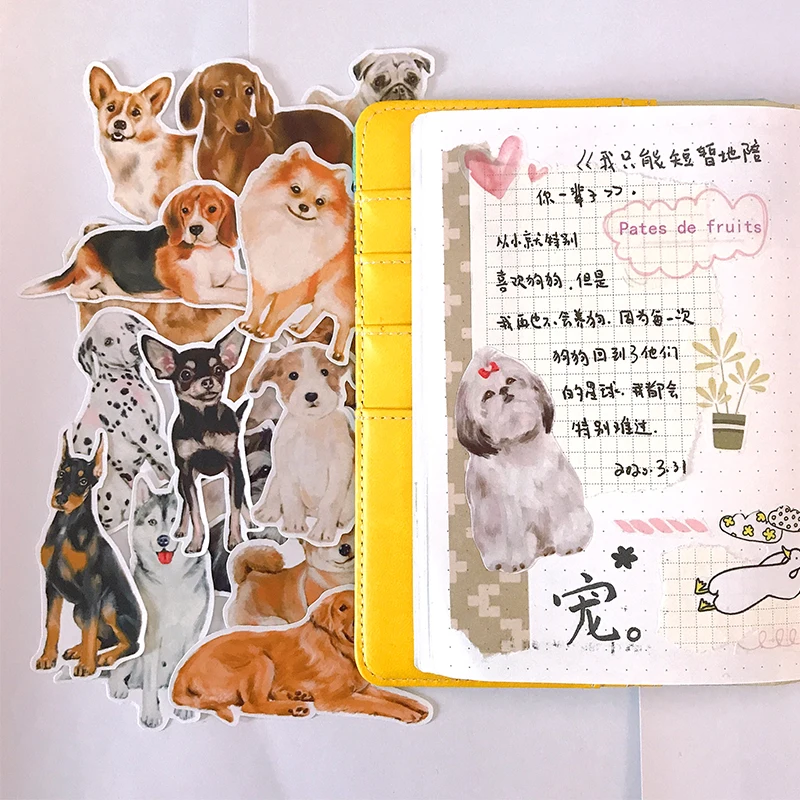 《我只能短暂地陪
你一辈子》.
Pates de fruits
从小就特别
喜欢狗狗,但是
我再也不会养狗.因为每一次
狗狗回到了他们
的星球.我都会
特别难过.
2020.3.31
宠。